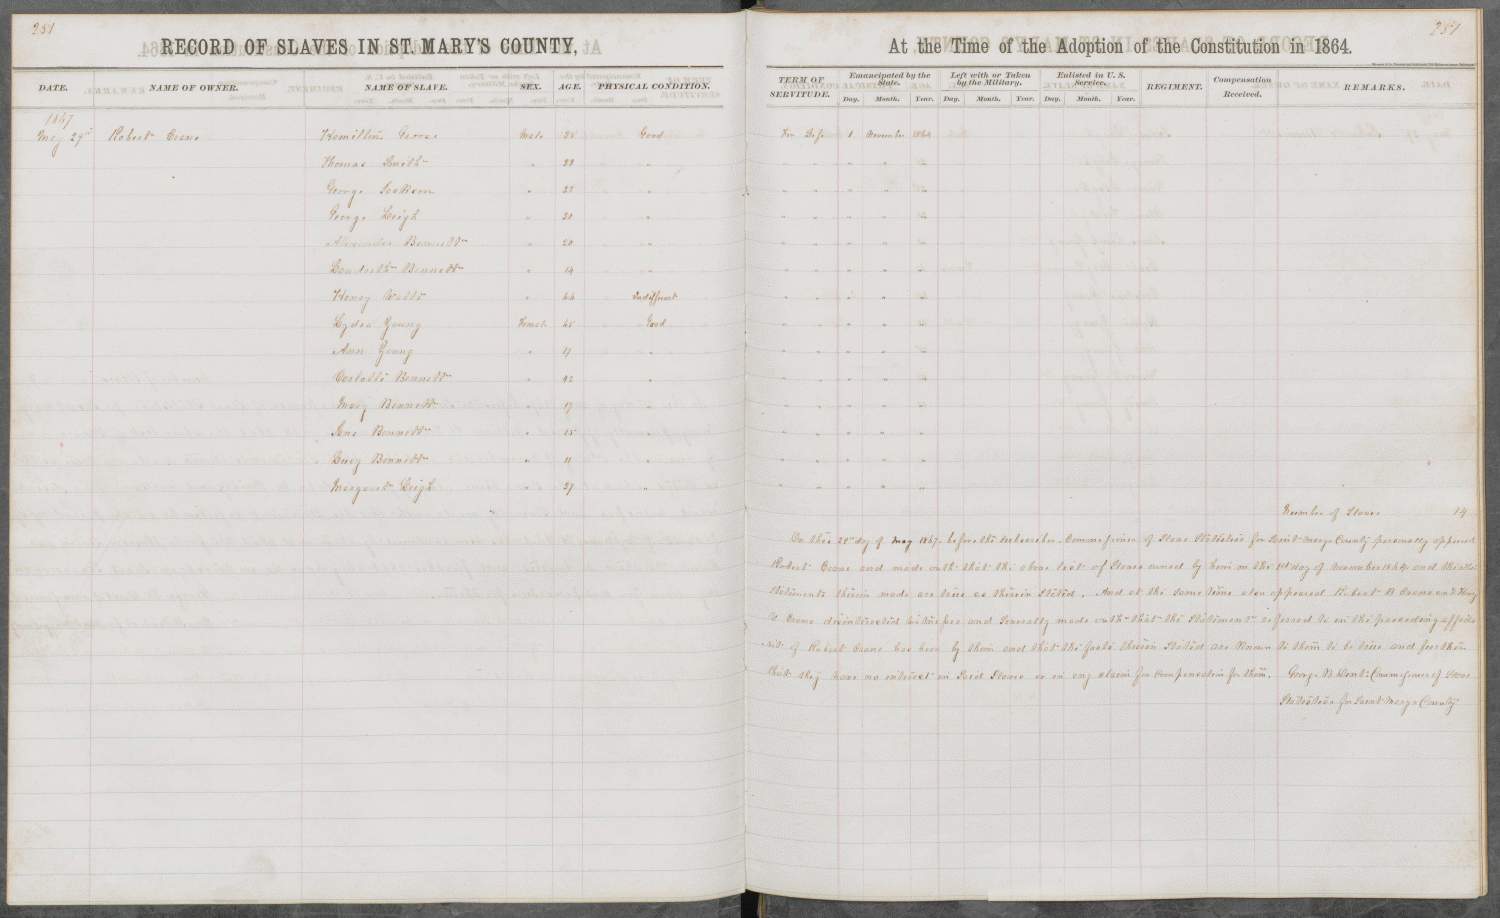 251
RECORD OF SLAVES IN ST. MARY'S COUNTY,
DATE. NAME OF OWNER. NAME OF SLAVE. SEX. AGE. PHYSICAL CONDITION.
1867
May 29th Robert Crane Hamilton George Male 25 Good
Thomas Smith " 22 "
George Jackson " 22 "
George Leigh " 20 "
Alexander Bennett " 20 "
Bennett " 14 "
Henry Watts " 44 Indifferent
Lydia Young Female 45 Good
Ann Young " 17 "
Carlotte Bennett " 42 "
Mary Bennett " 17 "
Jane Bennett " 15 "
Lucy Bennett " 11 "
Margaret Leigh " 27 "
251
At the Time of the Adoption of the Constitution in 1864.
TERM OF SERVITUDE. Emancipated by the State. Left with or Taken by the Military. Enlisted in U. S. Service. REGIMENT. Compensation Received. REMARKS.
Day. Month. Year. Day. Month. Year. Day. Month. Year.
For Life 1 November 1864
" " " " "
" " " " "
" " " " "
" " " " "
" " " " "
" " " " "
" " " " "
" " " " "
" " " " "
" " " " "
" " " " "
" " " " "
" " " " "
Number of Slaves 14
On this 29th day of May 1867. before the subscriber. Commissioner of Slave Statistics for Saint Marys County personally appeared
Robert Crane and made oath that the above list of Slaves owned by him on the 1st day of November 1864 and the
Statements therein made are true as therein stated. And at the same time also appeared Robert B Crane and
Crane disinterested witnesses and severally made oath that the statement referred to in the preceeding affida
vit of Robert Crane has been by them and that the facts therein stated are known to them to be true and further
that they have no interest in said Slaves or in any claim for compensation for them. George B Dent: Commissioner of Slave
Statistics for Saint Marys County